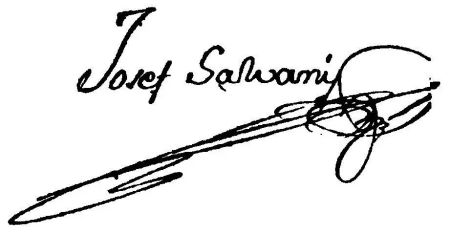 Josef Salvani